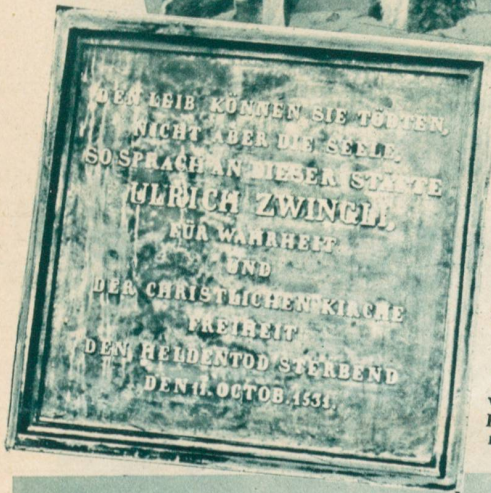 DEN LEIB KÖNNEN SIE TÖDTEN,
NICHT ABER DIE SEELE.
SO SPRACH AN DIESER STÄTTE
ULRICH ZWINGLI,
FÜR WAHRHEIT
UND
DER CHRISTLICHEN KIRCHE
FREIHEIT
DEN HELDENTOD STERBEND
DEN 11. OCTOB. 1531.